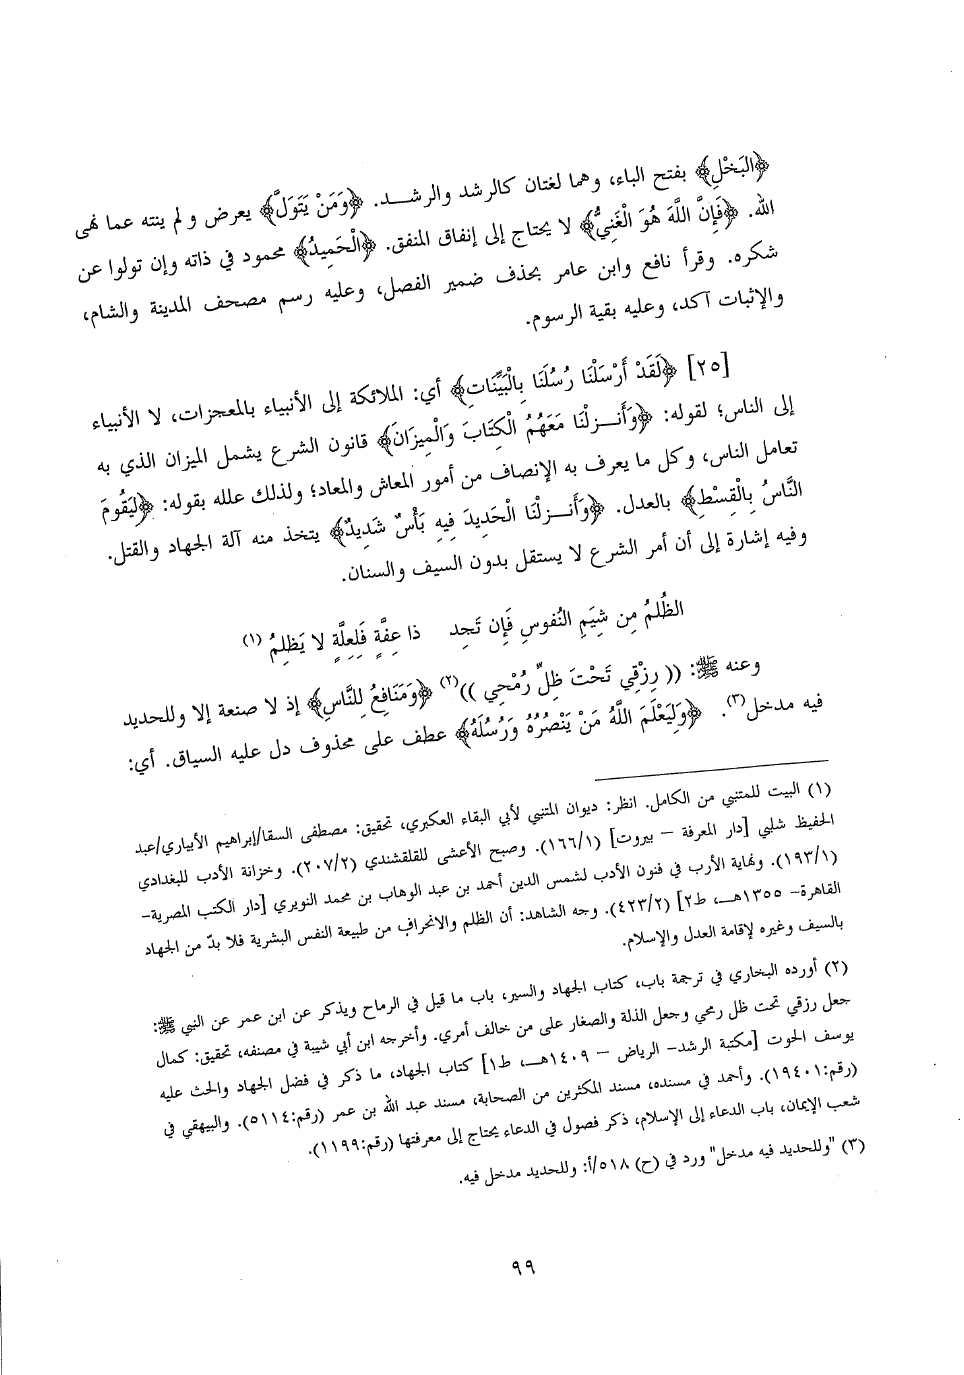 ﴿البَخْلِ﴾ بفتح الباء، وهما لغتان كالرشد والرشــد. ﴿وَمَنْ يَتَوَلَّ﴾ يعرض و لم ينته عما نهى
الله. ﴿فَإِنَّ اللَّهَ هُوَ الْغَنِيُّ﴾ لا يحتاج إلى إنفاق المنفق. ﴿الْحَمِيدُ﴾ محمود في ذاته وإن تولوا عن
شكره. وقرأ نافع وابن عامر بحذف ضمير الفصل، وعليه رسم مصحف المدينة والشام،
والإثبات آكد، وعليه بقية الرسوم.
[٢٥] ﴿لَقَدْ أَرْسَلْنَا رُسُلَنَا بِالْبَيِّنَاتِ﴾ أي: الملائكة إلى الأنبياء بالمعجزات، لا الأنبياء
إلى الناس؛ لقوله: ﴿وَأَنــزلْنَا مَعَهُمُ الْكِتَابَ وَالْمِيزَانَ﴾ قانون الشرع يشمل الميزان الذي به
تعامل الناس، وكل ما يعرف به الإنصاف من أمور المعاش والمعاد؛ ولذلك علله بقوله: ﴿لِيَقُومَ
النَّاسُ بِالْقِسْطِ﴾ بالعدل. ﴿وَأَنــزلْنَا الْحَدِيدَ فِيهِ بَأْسٌ شَدِيدٌ﴾ يتخذ منه آلة الجهاد والقتل.
وفيه إشارة إلى أن أمر الشرع لا يستقل بدون السيف والسنان.
الظُلمُ مِن شِيَمِ النُفوسِ فَإِن تَجِد ذا عِفَّةٍ فَلِعِلَّةٍ لا يَظلِمُ (١)
وعنه ﷺ: (( رِزْقِي تَحْتَ ظِلِّ رُمْحِي ))(٢) ﴿وَمَنَافِعُ لِلنَّاسِ﴾ إذ لا صنعة إلا وللحديد
فيه مدخل(٣). ﴿وَلِيَعْلَمَ اللَّهُ مَنْ يَنْصُرُهُ وَرُسُلَهُ﴾ عطف على محذوف دل عليه السياق. أي:
(١) البيت للمتنبي من الكامل. انظر: ديوان المتنبي لأبي البقاء العكبري، تحقيق: مصطفى السقا/إبراهيم الأبياري/عبد
الحفيظ شلبي [دار المعرفة – بيروت] (١٦٦/١). وصبح الأعشى للقلقشندي (٢٠٧/٢). وخزانة الأدب للبغدادي
(١٩٣/١). ونهاية الأرب في فنون الأدب لشمس الدين أحمد بن عبد الوهاب بن محمد النويري [دار الكتب المصرية–
القاهرة– ١٣٥٥هــ، ط٢] (٤٢٣/٢). وجه الشاهد: أن الظلم والانحراف من طبيعة النفس البشرية فلا بدّ من الجهاد
بالسيف وغيره لإقامة العدل والإسلام.
(٢) أورده البخاري في ترجمة باب، كتاب الجهاد والسير، باب ما قيل في الرماح ويذكر عن ابن عمر عن النبي ﷺ:
جعل رزقي تحت ظل رمحي وجعل الذلة والصغار على من خالف أمري. وأخرجه ابن أبي شيبة في مصنفه، تحقيق: كمال
يوسف الحوت [مكتبة الرشد– الرياض – ١٤٠٩هــ، ط١] كتاب الجهاد، ما ذكر في فضل الجهاد والحث عليه
(رقم:١٩٤٠١). وأحمد في مسنده، مسند المكثرين من الصحابة، مسند عبد الله بن عمر (رقم:٥١١٤). والبيهقي في
شعب الإيمان، باب الدعاء إلى الإسلام، ذكر فصول في الدعاء يحتاج إلى معرفتها (رقم:١١٩٩).
(٣) "وللحديد فيه مدخل" ورد في (ح) ٥١٨/أ: وللحديد مدخل فيه.
٩٩